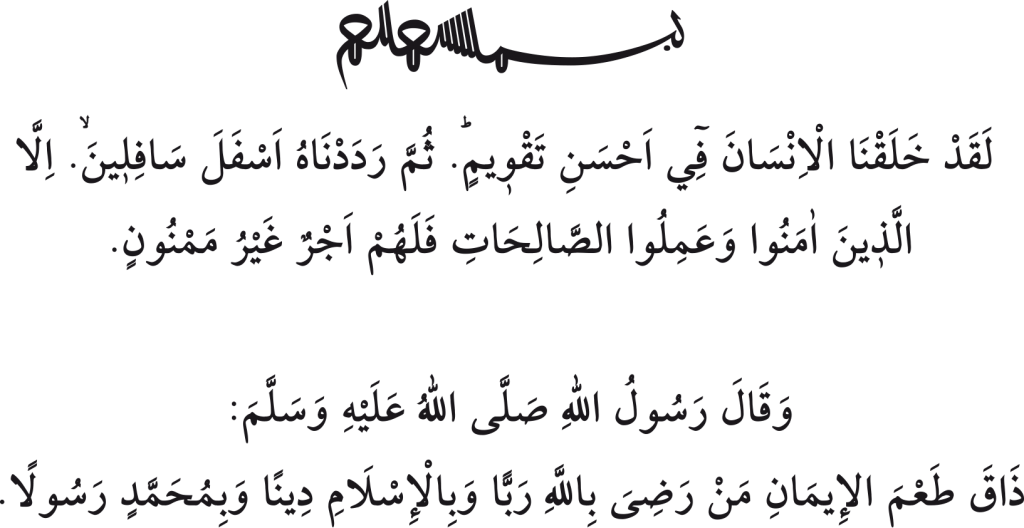 لَقَدْ خَلَقْنَا الْاِنْسَانَ فٖٓي اَحْسَنِ تَقْوٖيمٍؕ. ثُمَّ رَدَدْنَاهُ اَسْفَلَ سَافِلٖينَۙ. اِلَّا
الَّذٖينَ اٰمَنُوا وَعَمِلُوا الصَّالِحَاتِ فَلَهُمْ اَجْرٌ غَيْرُ مَمْنُونٍ.
وَقَالَ رَسُولُ اللهِ صَلَّى اللهُ عَلَيْهِ وَسَلَّمَ:
ذَاقَ طَعْمَ الإِيمَانِ مَنْ رَضِىَ بِاللَّهِ رَبًّا وَبِالْإِسْلَامِ دِينًا وَبِمُحَمَّدٍ رَسُولًا.